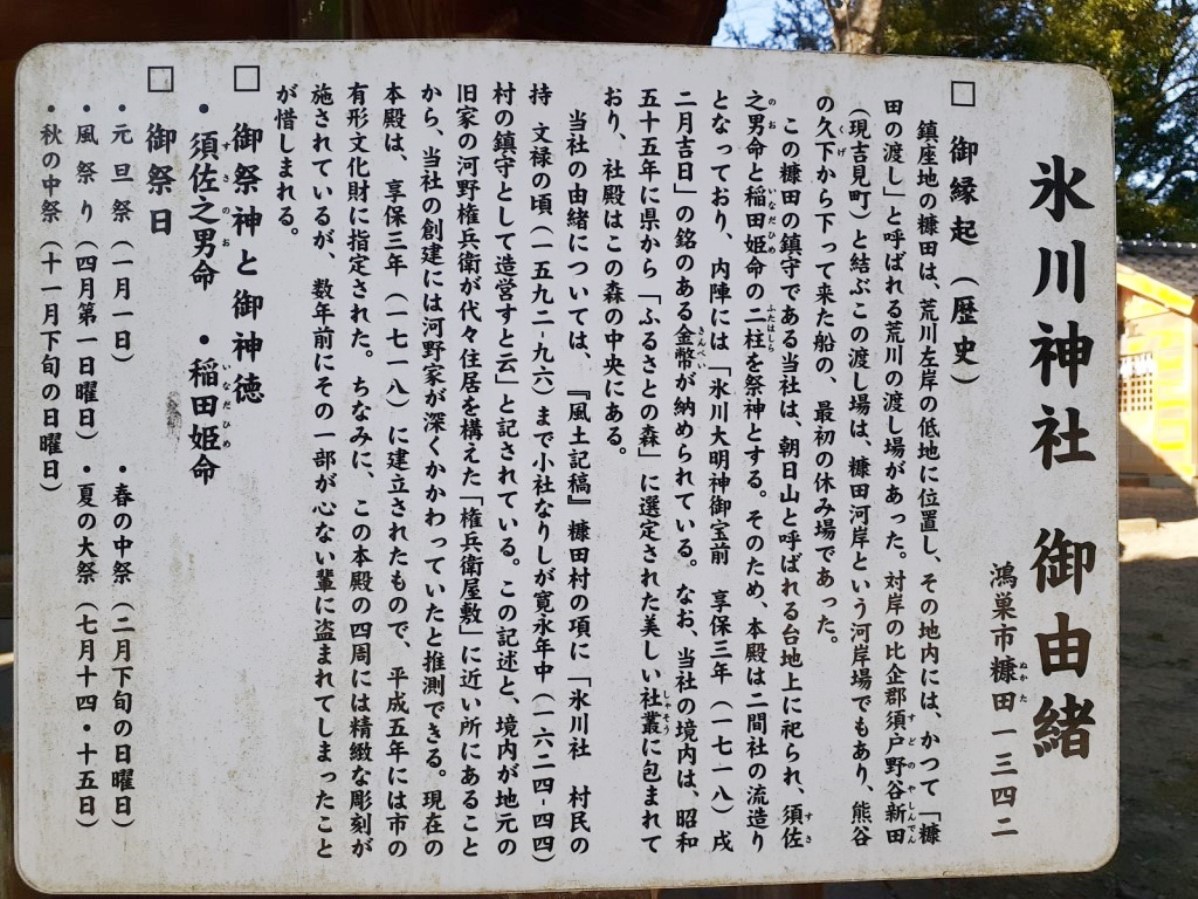 氷川神社 御由緒
鴻巣市糠田一三四二
□ 御縁起（歴史）
鎮座地の糠田は、荒川左岸の低地に位置し、その地内には、かつて「糠
田の渡し」と呼ばれる荒川の渡し場があった。対岸の比企郡須戸野谷新田
（現吉見町）と結ぶこの渡し場は、糠田河岸という河岸場でもあり、熊谷
の久下から下って来た船の、最初の休み場であった。
この糠田の鎮守である当社は、朝日山と呼ばれる台地上に祀られ、須佐
之男命と稲田姫命の二柱を祭神とする。そのため、本殿は二間社の流造り
となっており、内陣には「氷川大明神御宝前 享保三年（一七一八）戌
二月吉日」の銘のある金幣が納められている。なお、当社の境内は、昭和
五十五年に県から「ふるさとの森」に選定された美しい社叢に包まれて
おり、社殿はこの森の中央にある。
当社の由緒については、『風土記稿』糠田村の項に「氷川社 村民の
持 文禄の頃（一五九二-九六）まで小社なりしが寛永年中（一六二四-四四）
村の鎮守として造営すと云」と記されている。この記述と、境内が地元の
旧家の河野権兵衛が代々住居を構えた「権兵衛屋敷」に近い所にあること
から、当社の創建には河野家が深くかかわっていたと推測できる。現在の
本殿は、享保三年（一七一八）に建立されたもので、平成五年には市の
有形文化財に指定された。ちなみに、この本殿の四周には精緻な彫刻が
施されているが、数年前にその一部が心ない輩に盗まれてしまったこと
が惜しまれる。
□ 御祭神と御神徳
・須佐之男命 ・稲田姫命
□ 御祭日
・元旦祭（一月一日） ・春の中祭（二月下旬の日曜日）
・風祭り（四月第一日曜日）・夏の大祭（七月十四・十五日）
・秋の中祭（十一月下旬の日曜日）